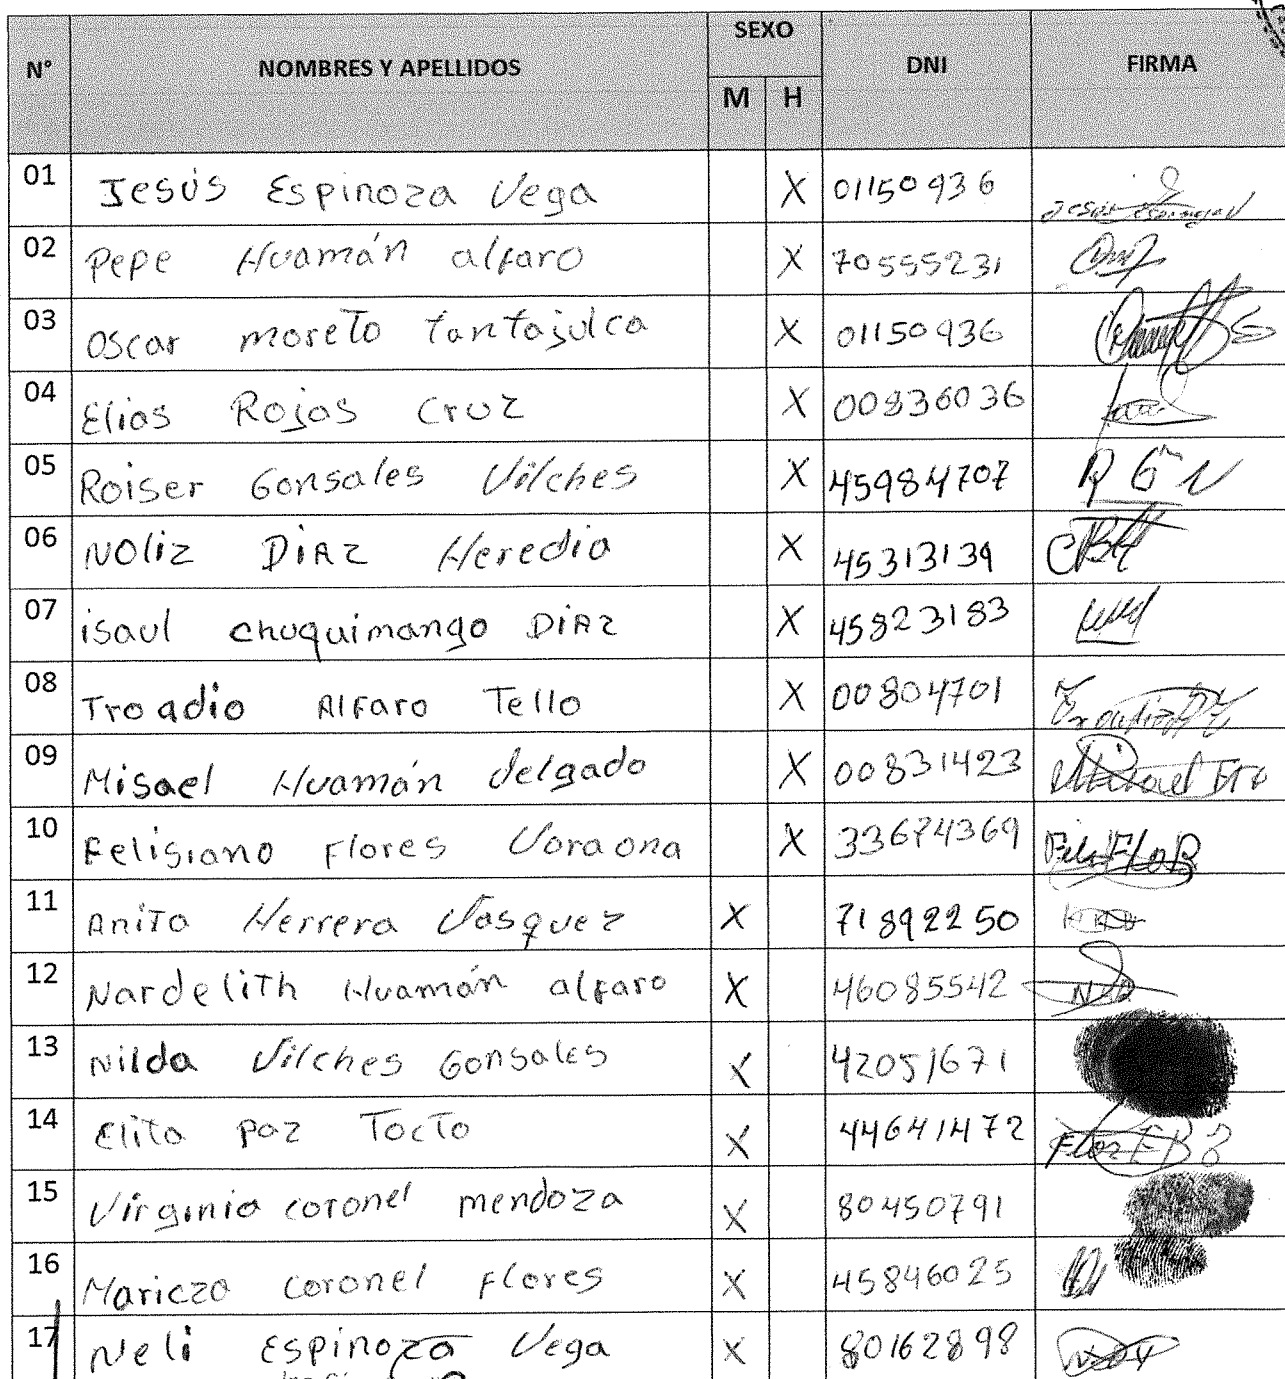 N° NOMBRES Y APELLIDOS SEXO DNI FIRMA
M H
01 Jesús Espinoza Vega X 01150936
02 Pepe Huamán alfaro X 70555231
03 Oscar moreto tantajulca X 01150936
04 Elias Rojas Cruz X 00836036
05 Roiser Gonsales Vilches X 45984707
06 Noliz DiAz Heredia X 45313139
07 isaul chuquimango DiAz X 45823183
08 Troadio Alfaro Tello X 00804701
09 Misael Huamán delgado X 00831423
10 Felisiano Flores Varaona X 33674369
11 Anita Herrera Vasquez X 71892250
12 Nardelith Huamán alfaro X 46085542
13 Nilda Vilches Gonsales X 42051671
14 Elita paz Tocto X 44641472
15 Virginia coronel mendoza X 80450791
16 Maricza coronel Flores X 45846025
17 Neli Espinoza Vega X 80162898